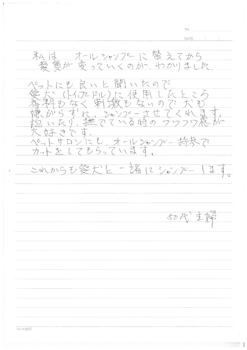 私は オールシャンプーに替えてから
髪質が変っていくのが、わかりました
ペットにも良いと聞いたので
愛犬(トイプードル)に使用したところ
香料もなく刺激もないので犬も
嫌がらずに、シャンプーさせてくれます。
抱いたり、撫でている時のフワフワ感が
大好きです。
ペットサロンにも、オールシャンプー持参で
カットをしてもらっています。
これからも愛犬と一緒にシャンプーします。
50代 主婦